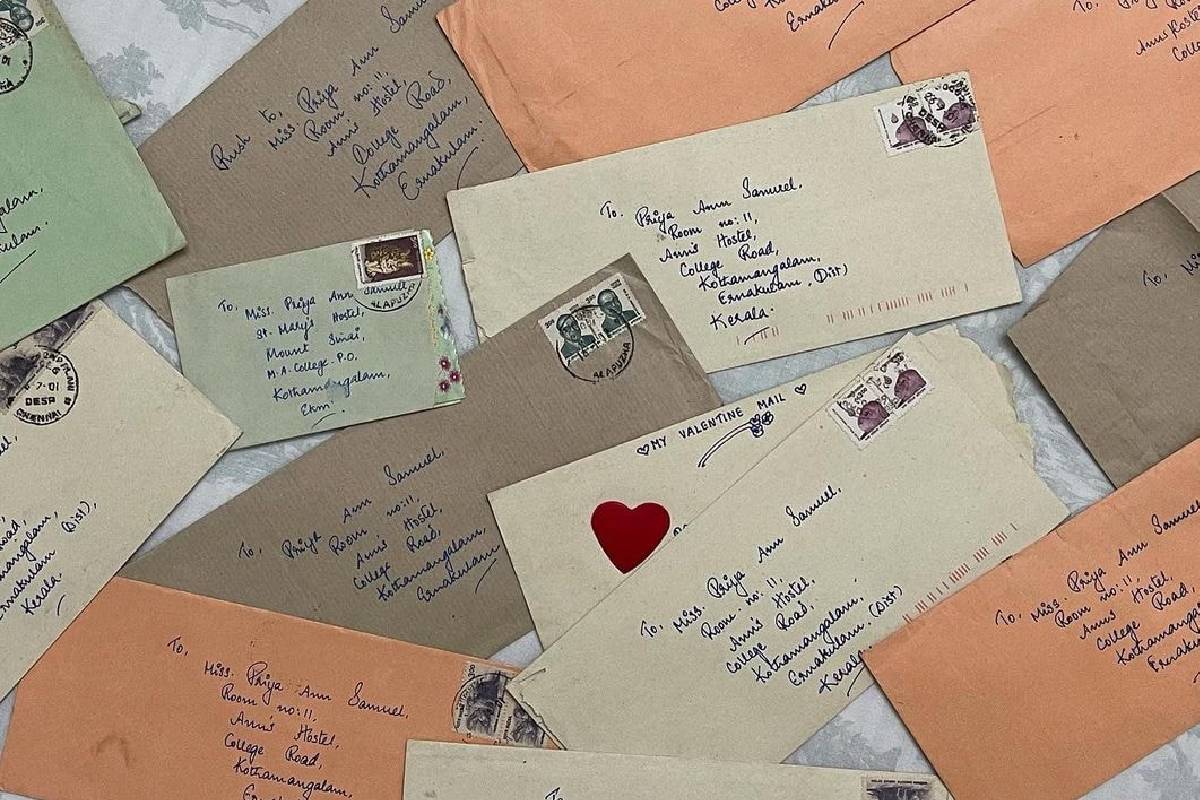 Rush to,
Miss. Priya Ann
Room no:11,
Ann's Hostel,
College Road,
Kothamangalam,
Ernakulam.
To,
Ann's Hostel
To. Priya Ann Samuel.
Room no:11,
Ann's Hostel,
College Road,
Kothamangalam,
Ernakulam. (Dist)
Kerala.
To, Miss. Priya Ann Samuel,
St. Mary's Hostel,
Mount Sinai,
M.A-College-P.O,
Kothamangalam,
Ekm.
ALAPUZHA
ALAPUZHA
DESP
CHENNAI
(Dist),
Ernakulam
Kerala
To, Priya Ann Samuel,
Room no:11,
Ann's Hostel,
College Road,
Kothamangalam,
Ernakulam.
MY VALENTINE MAIL
To, Miss. Priya Ann Samuel,
Room no: 11,
Ann's Hostel,
College Road,
Kothamangalam,
Ernakulam. (Dist)
Kerala
To, Miss. Priya Ann Samuel
Room no:11,
Anns Hostel,
College Road,
To,
Miss. Priya Ann Samuel,
Room no:11,
Ann's Hostel,
College Road,
Kothamangalam,
To